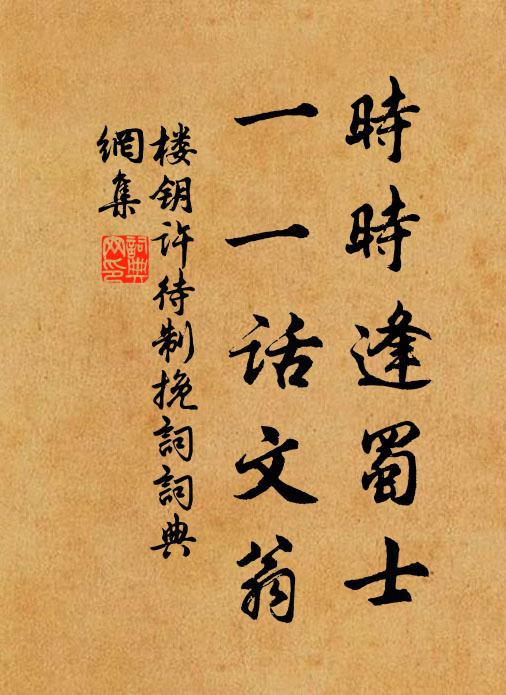 時時逢蜀士
一一話文翁
楼钥许待制挽詞詞典
網集
詞典
网印